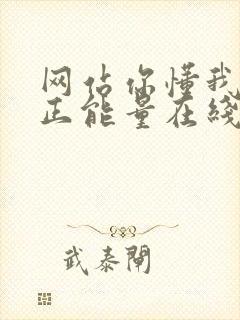 网站你懂我
正能量在线
武泰闸